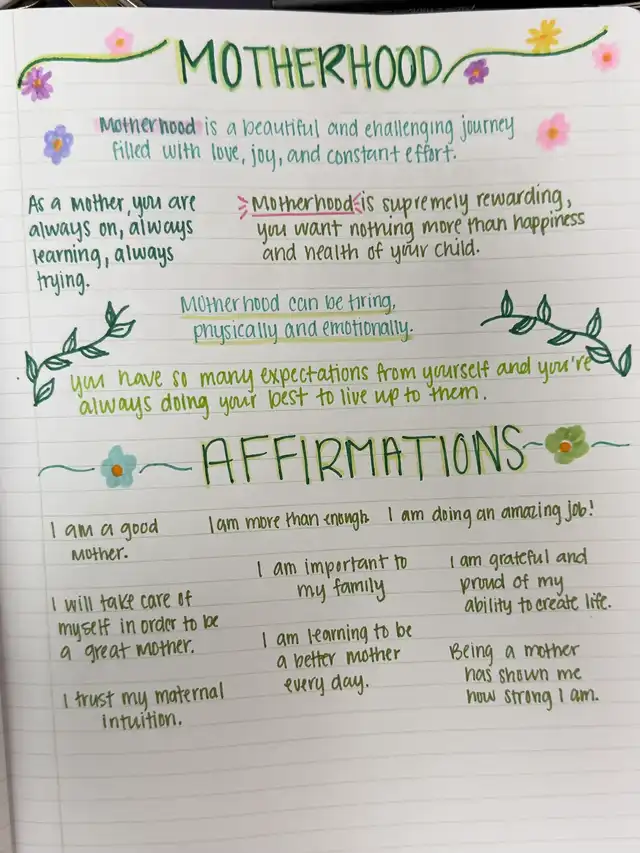 MOTHERHOOD
Motherhood is a beautiful and challenging journey
filled with love, joy, and constant effort.
As a mother, you are
always on, always
learning, always
trying.
Motherhood is supremely rewarding,
you want nothing more than happiness
and health of your child.
Motherhood can be tiring,
physically and emotionally.
you have so many expectations from yourself and you're
always doing your best to live up to them.
AFFIRMATIONS
I am a good
mother.
I am more than enough.
I am doing an amazing job!
I am important to
my family
I am grateful and
proud of my
ability to create life.
I will take care of
myself in order to be
a great mother.
I am learning to be
a better mother
every day.
Being a mother
has shown me
how strong I am.
I trust my maternal
intuition.